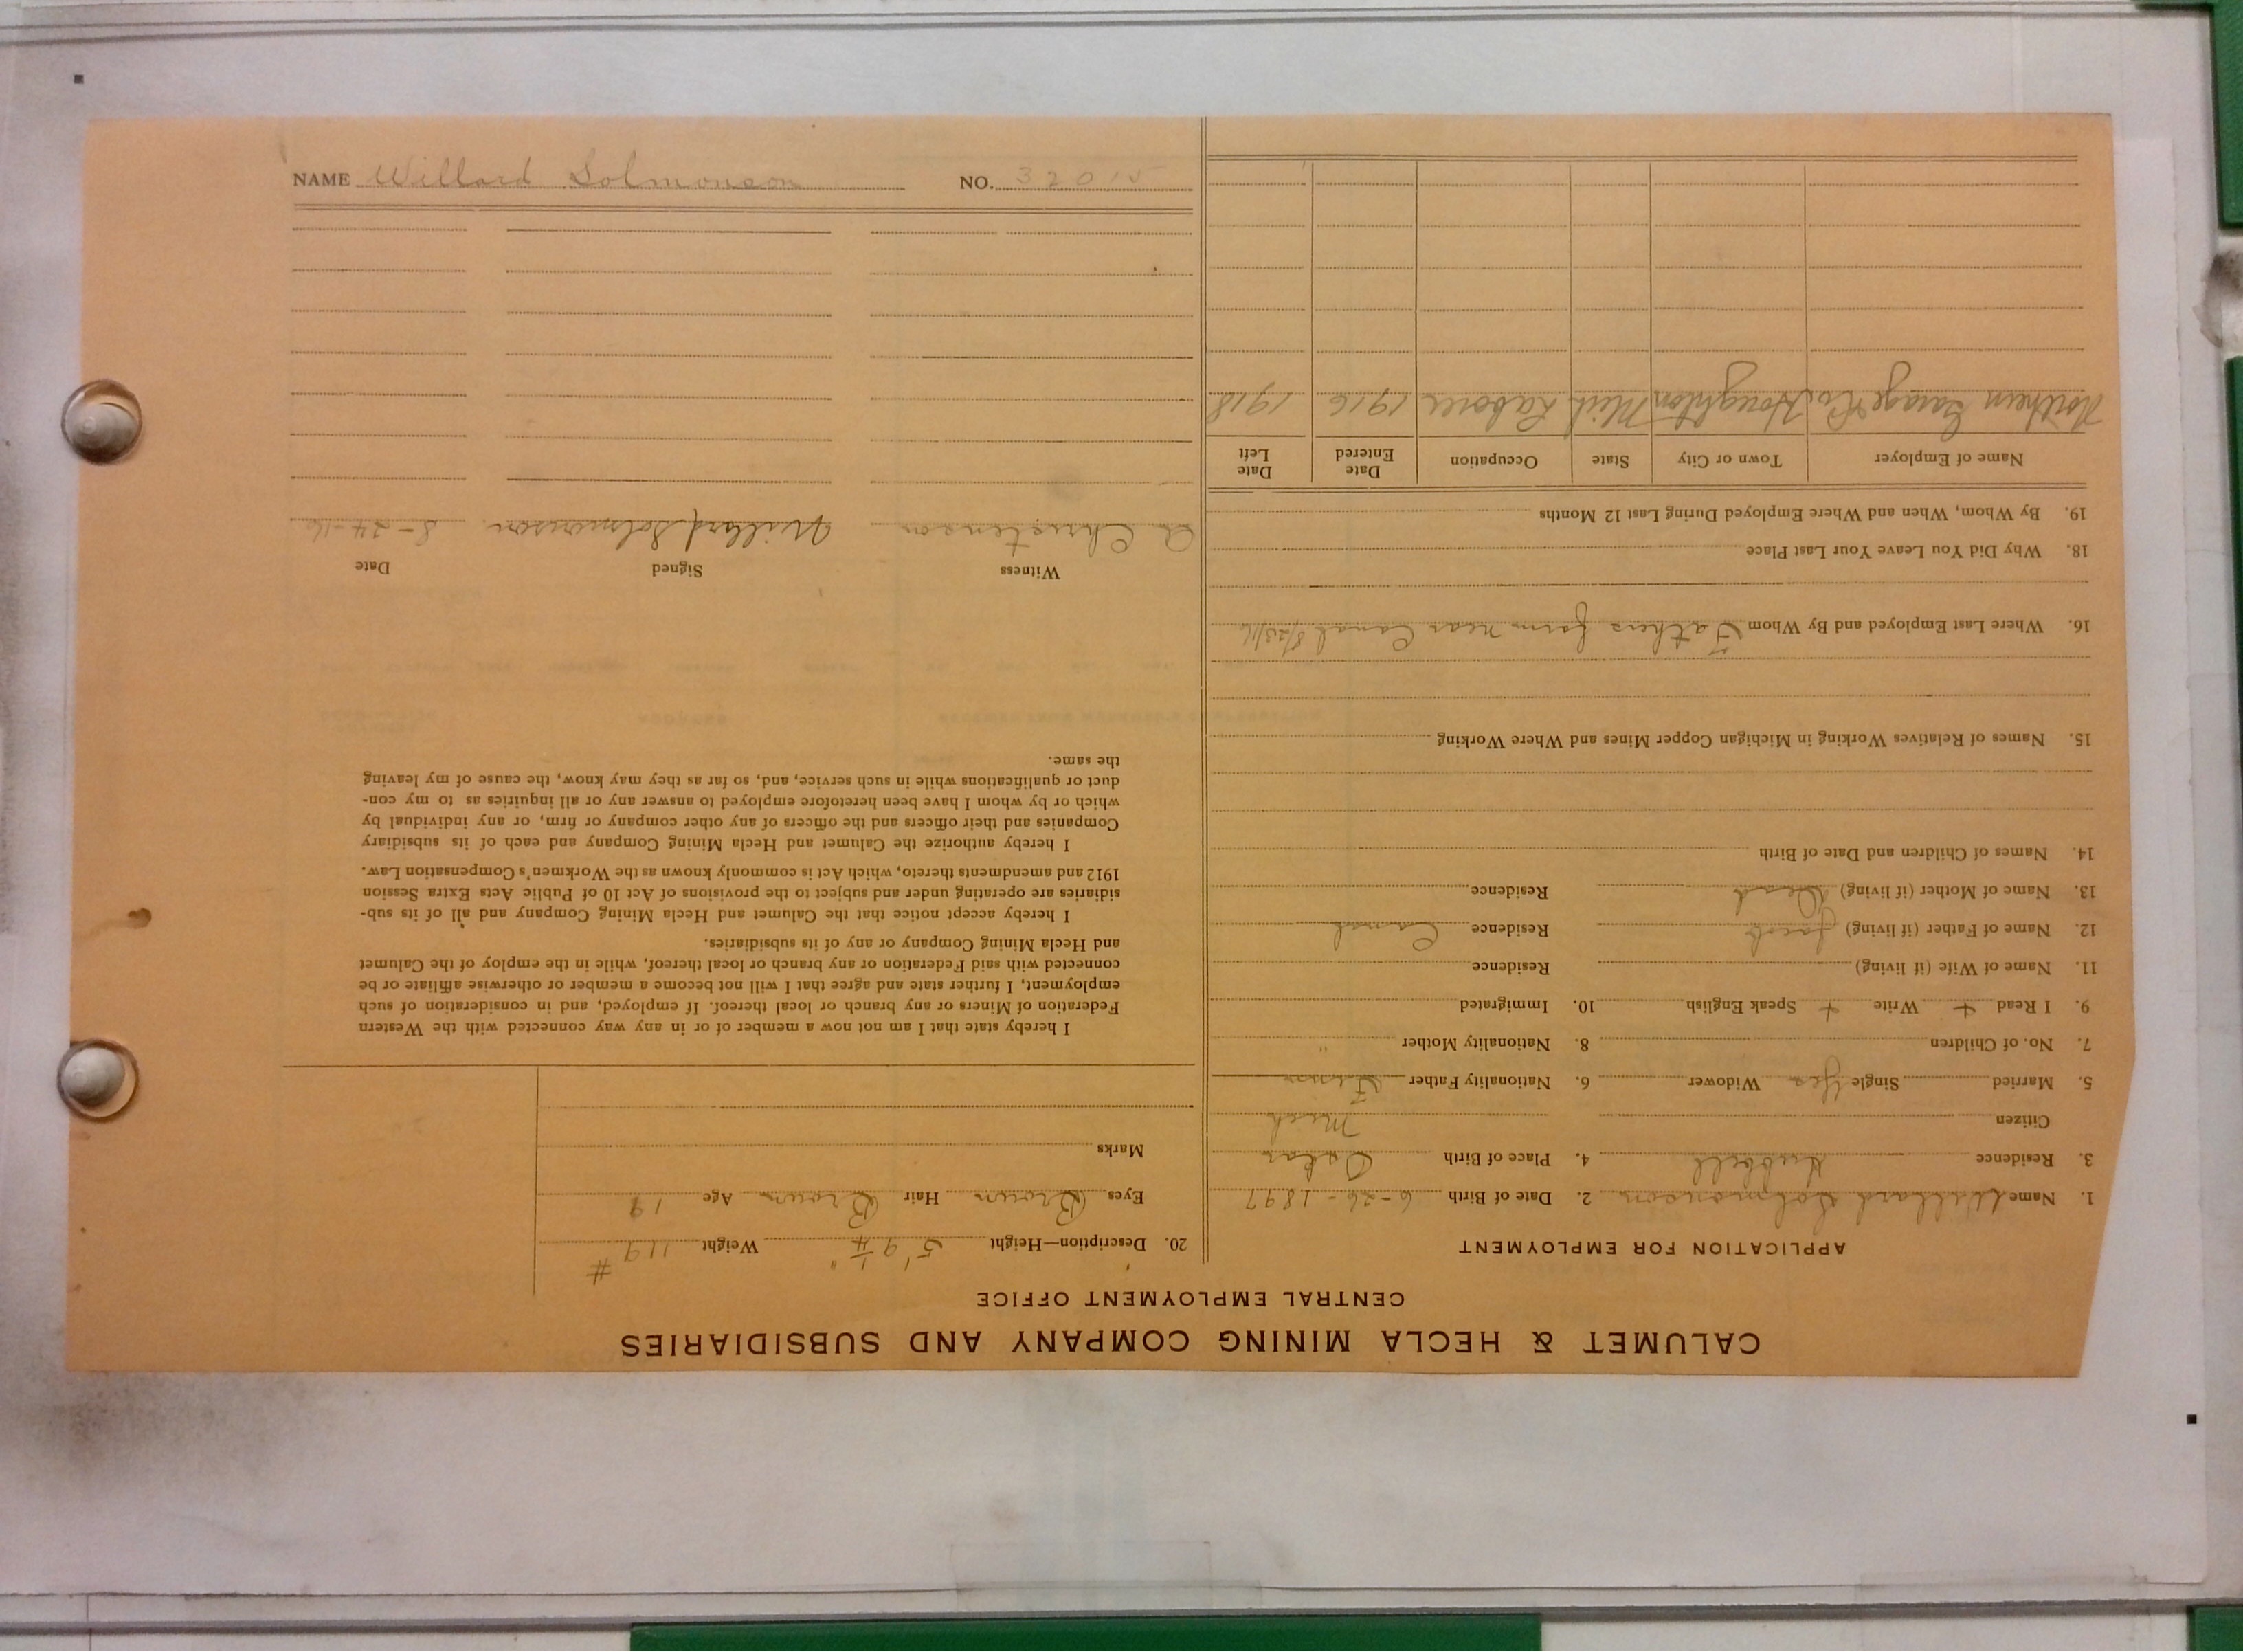 NAME Willard Solmonson NO. 32015
CALUMET & HECLA MINING COMPANY AND SUBSIDIARIES
CENTRAL EMPLOYMENT OFFICE
APPLICATION FOR EMPLOYMENT
1. Name Willard Solmonson 2. Date of Birth 6-26-1897
3. Residence Hubbell 4. Place of Birth Oskar
Citizen Mich
5. Married Single Yes Widower 6. Nationality Father Finn
7. No. of Children 8. Nationality Mother "
9. I Read + Write + Speak English 10. Immigrated
11. Name of Wife (if living) Residence
12. Name of Father (if living) Jacob Residence Canal
13. Name of Mother (if living) Dead Residence
14. Names of Children and Date of Birth
15. Names of Relatives Working in Michigan Copper Mines and Where Working
16. Where Last Employed and By Whom Fathers farm near Canal 8/23/16
18. Why Did You Leave Your Last Place
19. By Whom, When and Where Employed During Last 12 Months
Name of Employer Town or City State Occupation Date Entered Date Left
Northern Garage Co. Houghton Mich Laborer 1916 1918
20. Description—Height 5' 9 1/4" Weight 119 #
Eyes Brown Hair Brown Age 19
Marks
I hereby state that I am not now a member of or in any way connected with the Western
Federation of Miners or any branch or local thereof. If employed, and in consideration of such
employment, I further state and agree that I will not become a member or otherwise affiliate or be
connected with said Federation or any branch or local thereof, while in the employ of the Calumet
and Hecla Mining Company or any of its subsidiaries.
I hereby accept notice that the Calumet and Hecla Mining Company and all of its sub-
sidiaries are operating under and subject to the provisions of Act 10 of Public Acts Extra Session
1912 and amendments thereto, which Act is commonly known as the Workmen's Compensation Law.
I hereby authorize the Calumet and Hecla Mining Company and each of its subsidiary
Companies and their officers and the officers of any other company or firm, or any individual by
which or by whom I have been heretofore employed to answer any or all inquiries as to my con-
duct or qualifications while in such service, and, so far as they may know, the cause of my leaving
the same.
Witness Signed Date
A Christenson Willard Solmonson. 8-24-16